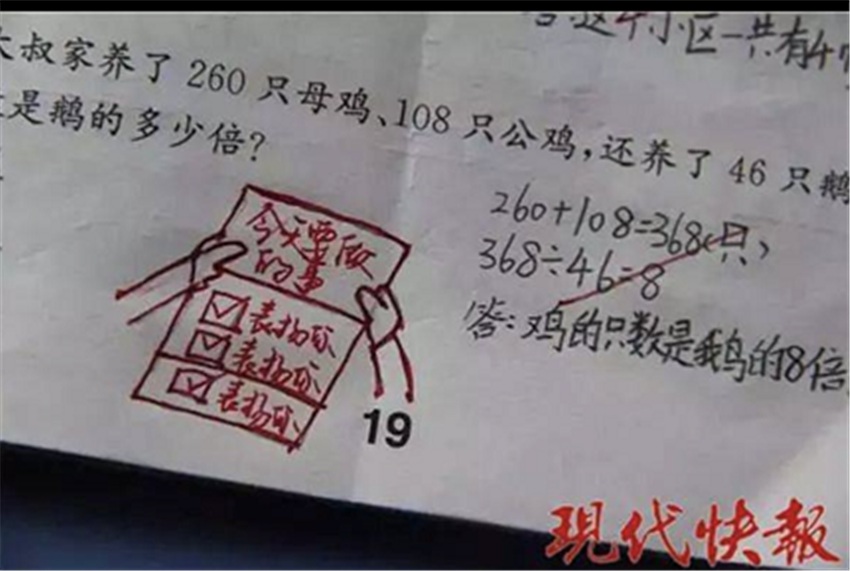 答：这个小区一共有4
大叔家养了 260 只母鸡、108 只公鸡，还养了 46 只鹅
是鹅的多少倍？
260+108=368（只）
368÷46=8
答：鸡的只数是鹅的8倍
今天要做
的事
表扬你
表扬你
表扬你
19
现代快报